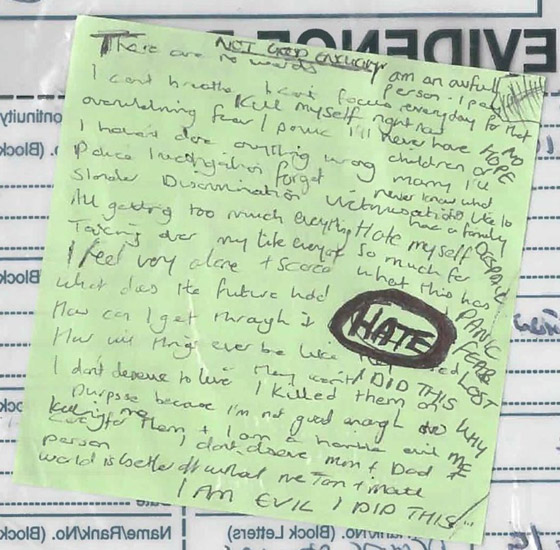 EVIDENCE
NOT GOOD ENOUGH
There are no words
I am an awful person - I pay
I can't breathe I can't focus everyday for that
Kill myself right now
overwhelming fear / panic I'll never have NO
HOPE
I haven't done anything wrong
children or
marry I'll
Police Investigation forget
never know what
Slander Discrimination Victimisation
it's like to
have a family
All getting too much everything Hate myself
DESPAIR
Taking over my life everyday
So much for
what this has
I feel very alone + scared
PANIC
what does the future hold
HATE
FEAR
How can I get through it
LOST
How will things ever be like
I DID THIS
WHY
ME
I don't deserve to live I killed them on
purpose because I'm not good enough
to
Killing me
care for them + I am a horrible evil
person
I don't deserve mum + Dad
world is better off without me
I AM EVIL I DID THIS
Continuity
(Block
No. (Block
(Block
Name/Rank/No.
(Block Letters)
Name/Rank/No. (Block